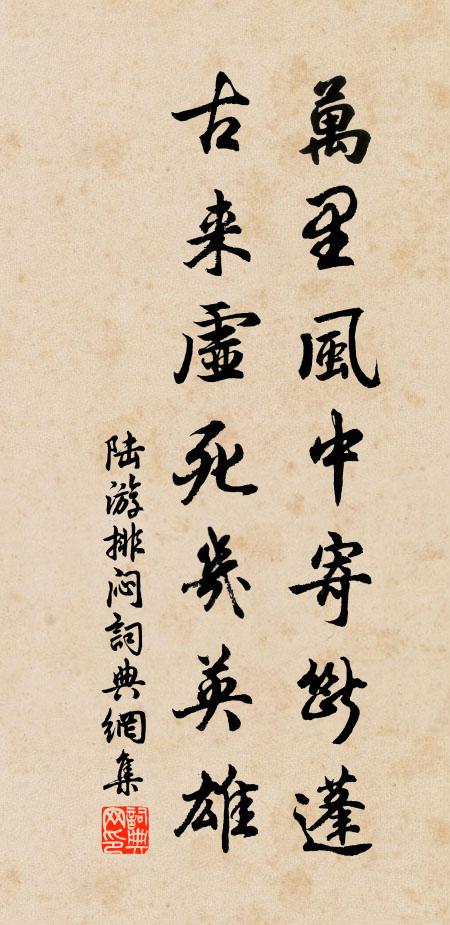 萬里風中寄斷蓬
古来虛死幾英雄
陆游排闷詞典網集
詞典网印